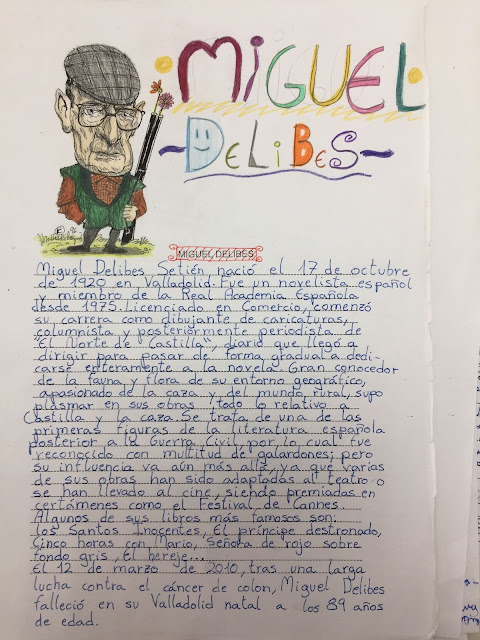 MIGUEL
DELIBES
MIGUEL DELIBES
Miguel Delibes Setién nació el 17 de octubre
de 1920 en Valladolid. Fue un novelista español
y miembro de la Real Academia Española
desde 1975. Licenciado en Comercio, comenzó
su carrera como dibujante de caricaturas,
columnista y posteriormente periodista de
"El Norte de Castilla", diario que llegó a
dirigir para pasar de forma gradual a dedi-
carse enteramente a la novela. Gran conocedor
de la fauna y flora de su entorno geográfico,
apasionado de la caza y del mundo rural, supo
plasmar en sus obras todo lo relativo a
Castilla y la caza. Se trata de una de las
primeras figuras de la literatura española
posterior a la Guerra Civil, por lo cual fue
reconocido con multitud de galardones; pero
su influencia va aún más allá, ya que varias
de sus obras han sido adaptadas al teatro o
se han llevado al cine, siendo premiadas en
certámenes como el Festival de Cannes.
Algunos de sus libros más famosos son:
los Santos Inocentes, El príncipe destronado,
Cinco horas con Mario, Señora de rojo sobre
fondo gris, El hereje...
El 12 de marzo de 2010, tras una larga
lucha contra el cáncer de colon, Miguel Delibes
falleció en su Valladolid natal a los 89 años
de edad.